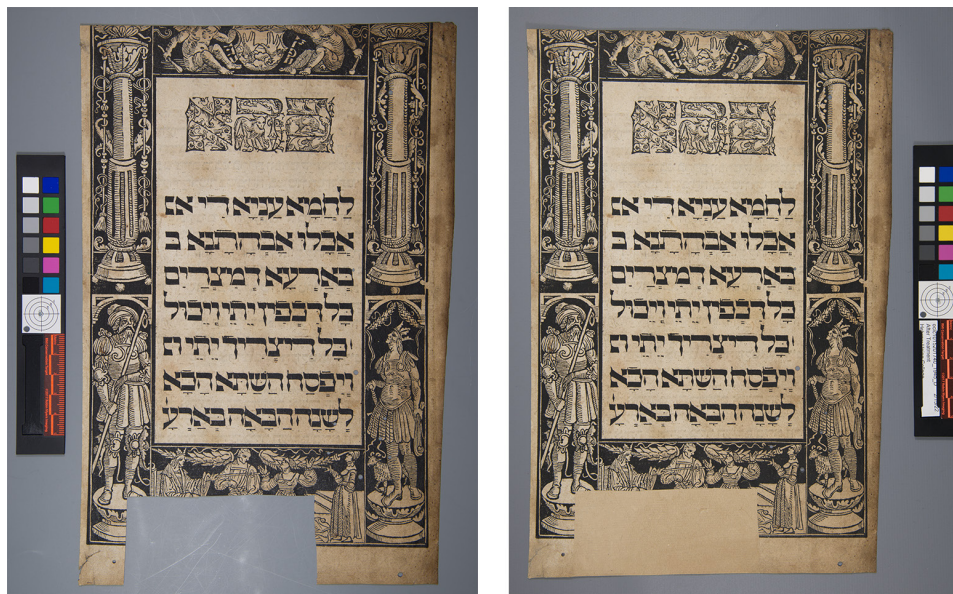 כהא
לַחְמָא עַנְיָא דִי אֲ
אֲכָלוּ אֲבָהָתָנָא ב
בְּאַרְעָא דְמִצְרַיִם
כָּל דִכְפִין יֵתֵי וְיֵיכוֹל
וְכָל דִיצְרִיךְ יֵתֵי וי
וְיִפְסַח הַשַׁתָּא הָכָא
לְשָׁנָה הַבָּאָה בְּאַרְעָ
כהא
לַחְמָא עַנְיָא דִי אֲ
אֲכָלוּ אֲבָהָתָנָא ב
בְּאַרְעָא דְמִצְרַיִם
כָּל דִכְפִין יֵתֵי וְיֵיכוֹל
וְכָל דִיצְרִיךְ יֵתֵי וי
וְיִפְסַח הַשַׁתָּא הָכָא
לְשָׁנָה הַבָּאָה בְּאַרְעָ
After Treatment